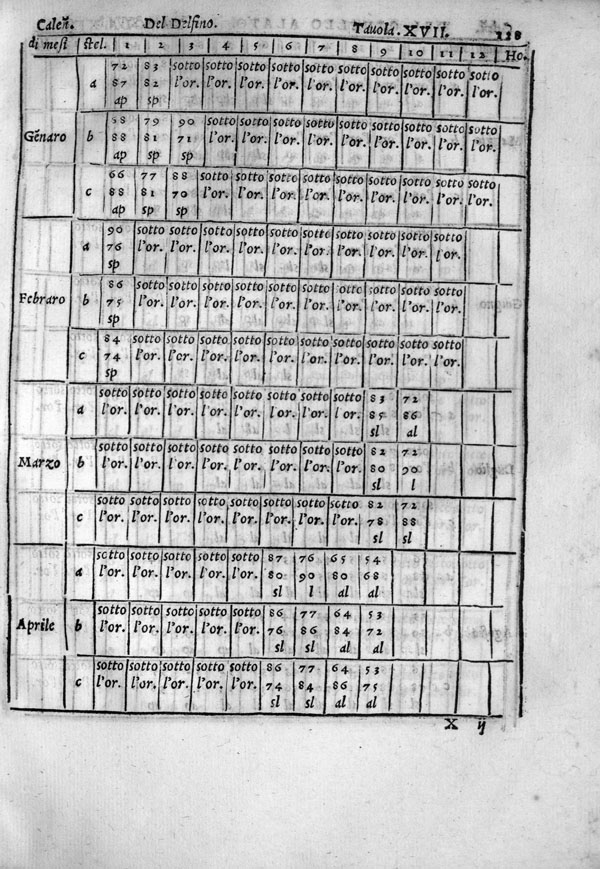 Caleñ. Del Delfino. Tauola. XVII. 128
di mesi stel. 1 2 3 4 5 6 7 8 9 10 11 12 Ho.
72 83 sotto sotto sotto sotto sotto sotto sotto sotto sotto sotto
a 87 82 l'or. l'or. l'or. l'or. l'or. l'or. l'or. l'or. l'or. l'or.
ap sp
68 79 90 sotto sotto sotto sotto sotto sotto sotto sotto sotto
Gẽnaro b 88 81 71 l'or. l'or. l'or. l'or. l'or. l'or. l'or. l'or. l'or.
ap sp sp
66 77 88 sotto sotto sotto sotto sotto sotto sotto sotto sotto
c 88 81 70 l'or. l'or. l'or. l'or. l'or. l'or. l'or. l'or. l'or.
ap sp sp
90 sotto sotto sotto sotto sotto sotto sotto sotto sotto
a 76 l'or. l'or. l'or. l'or. l'or. l'or. l'or. l'or. l'or.
sp
86 sotto sotto sotto sotto sotto sotto sotto sotto sotto
Febraro b 75 l'or. l'or. l'or. l'or. l'or. l'or. l'or. l'or. l'or.
sp
84 sotto sotto sotto sotto sotto sotto sotto sotto sotto
c 74 l'or. l'or. l'or. l'or. l'or. l'or. l'or. l'or. l'or.
sp
sotto sotto sotto sotto sotto sotto sotto sotto 83 72
a l'or. l'or. l'or. l'or. l'or. l'or. l'or. l'or. 85 86
sl al
sotto sotto sotto sotto sotto sotto sotto sotto 82 72
Marzo b l'or. l'or. l'or. l'or. l'or. l'or. l'or. l'or. 80 90
sl l
sotto sotto sotto sotto sotto sotto sotto sotto 82 72
c l'or. l'or. l'or. l'or. l'or. l'or. l'or. l'or. 78 88
sl sl
sotto sotto sotto sotto sotto 87 76 65 54
a l'or. l'or. l'or. l'or. l'or. 80 90 80 68
sl l al al
sotto sotto sotto sotto sotto 86 77 64 53
Aprile b l'or. l'or. l'or. l'or. l'or. 76 86 84 72
sl sl al al
sotto sotto sotto sotto sotto 86 77 64 53
c l'or. l'or. l'or. l'or. l'or. 74 84 86 75
sl sl al al
X ij